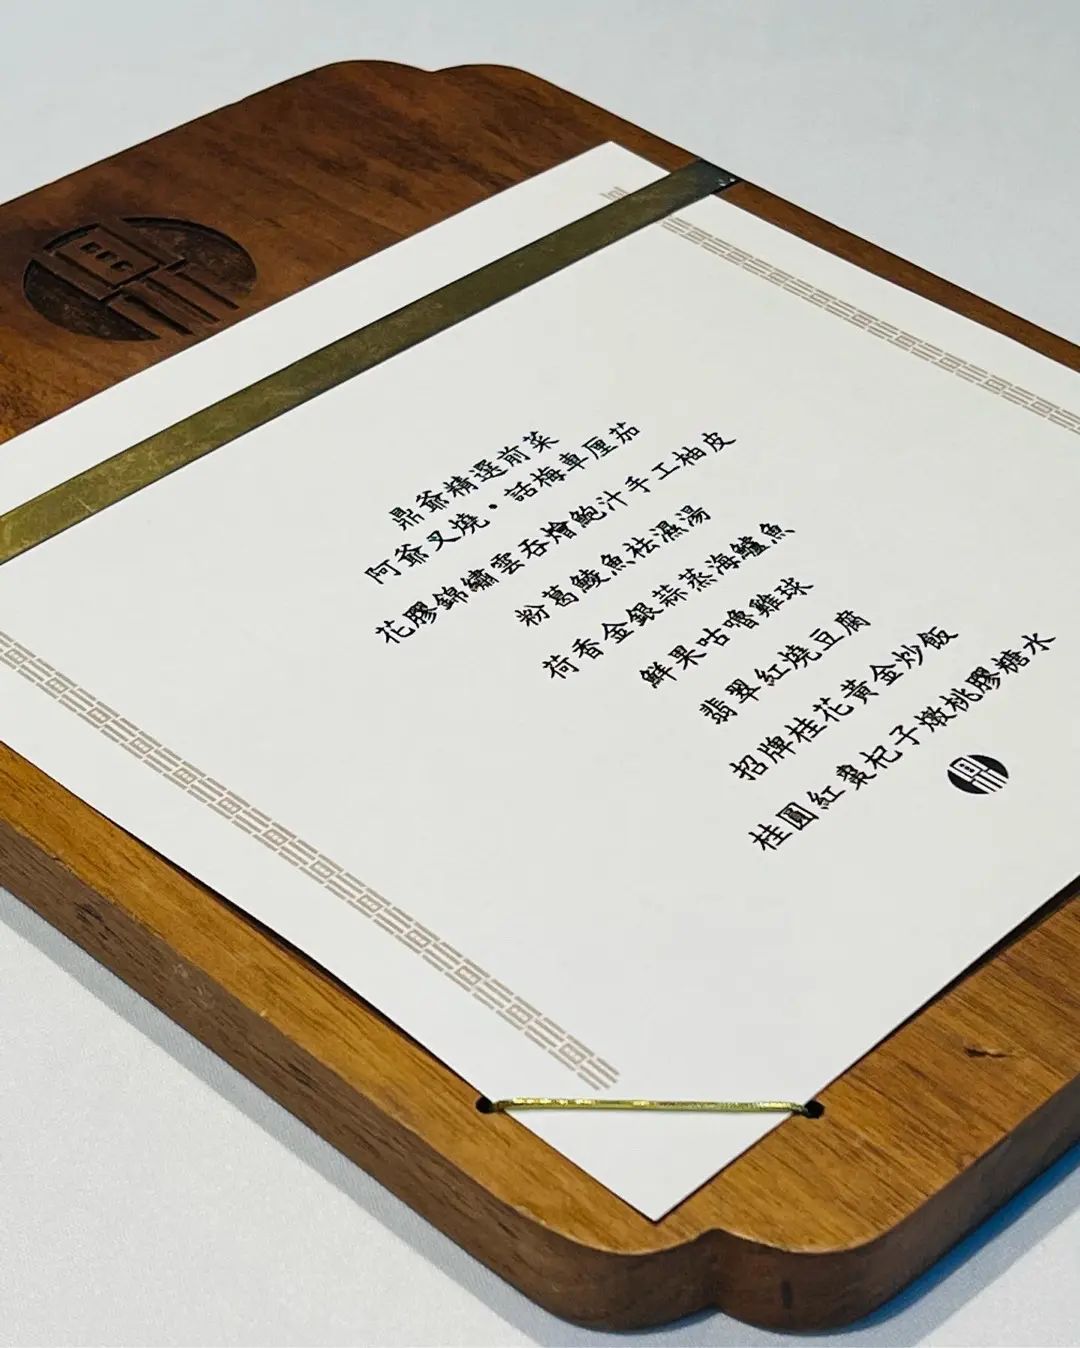 鼎爺精選前菜
阿爺叉燒•話梅車厘茄
花膠錦繡雲吞燴鮑汁手工柚皮
粉葛鯪魚祛濕湯
荷香金銀蒜蒸海鱸魚
鮮果咕嚕雞球
翡翠紅燒豆腐
招牌桂花黃金炒飯
桂圓紅棗杞子燉桃膠糖水